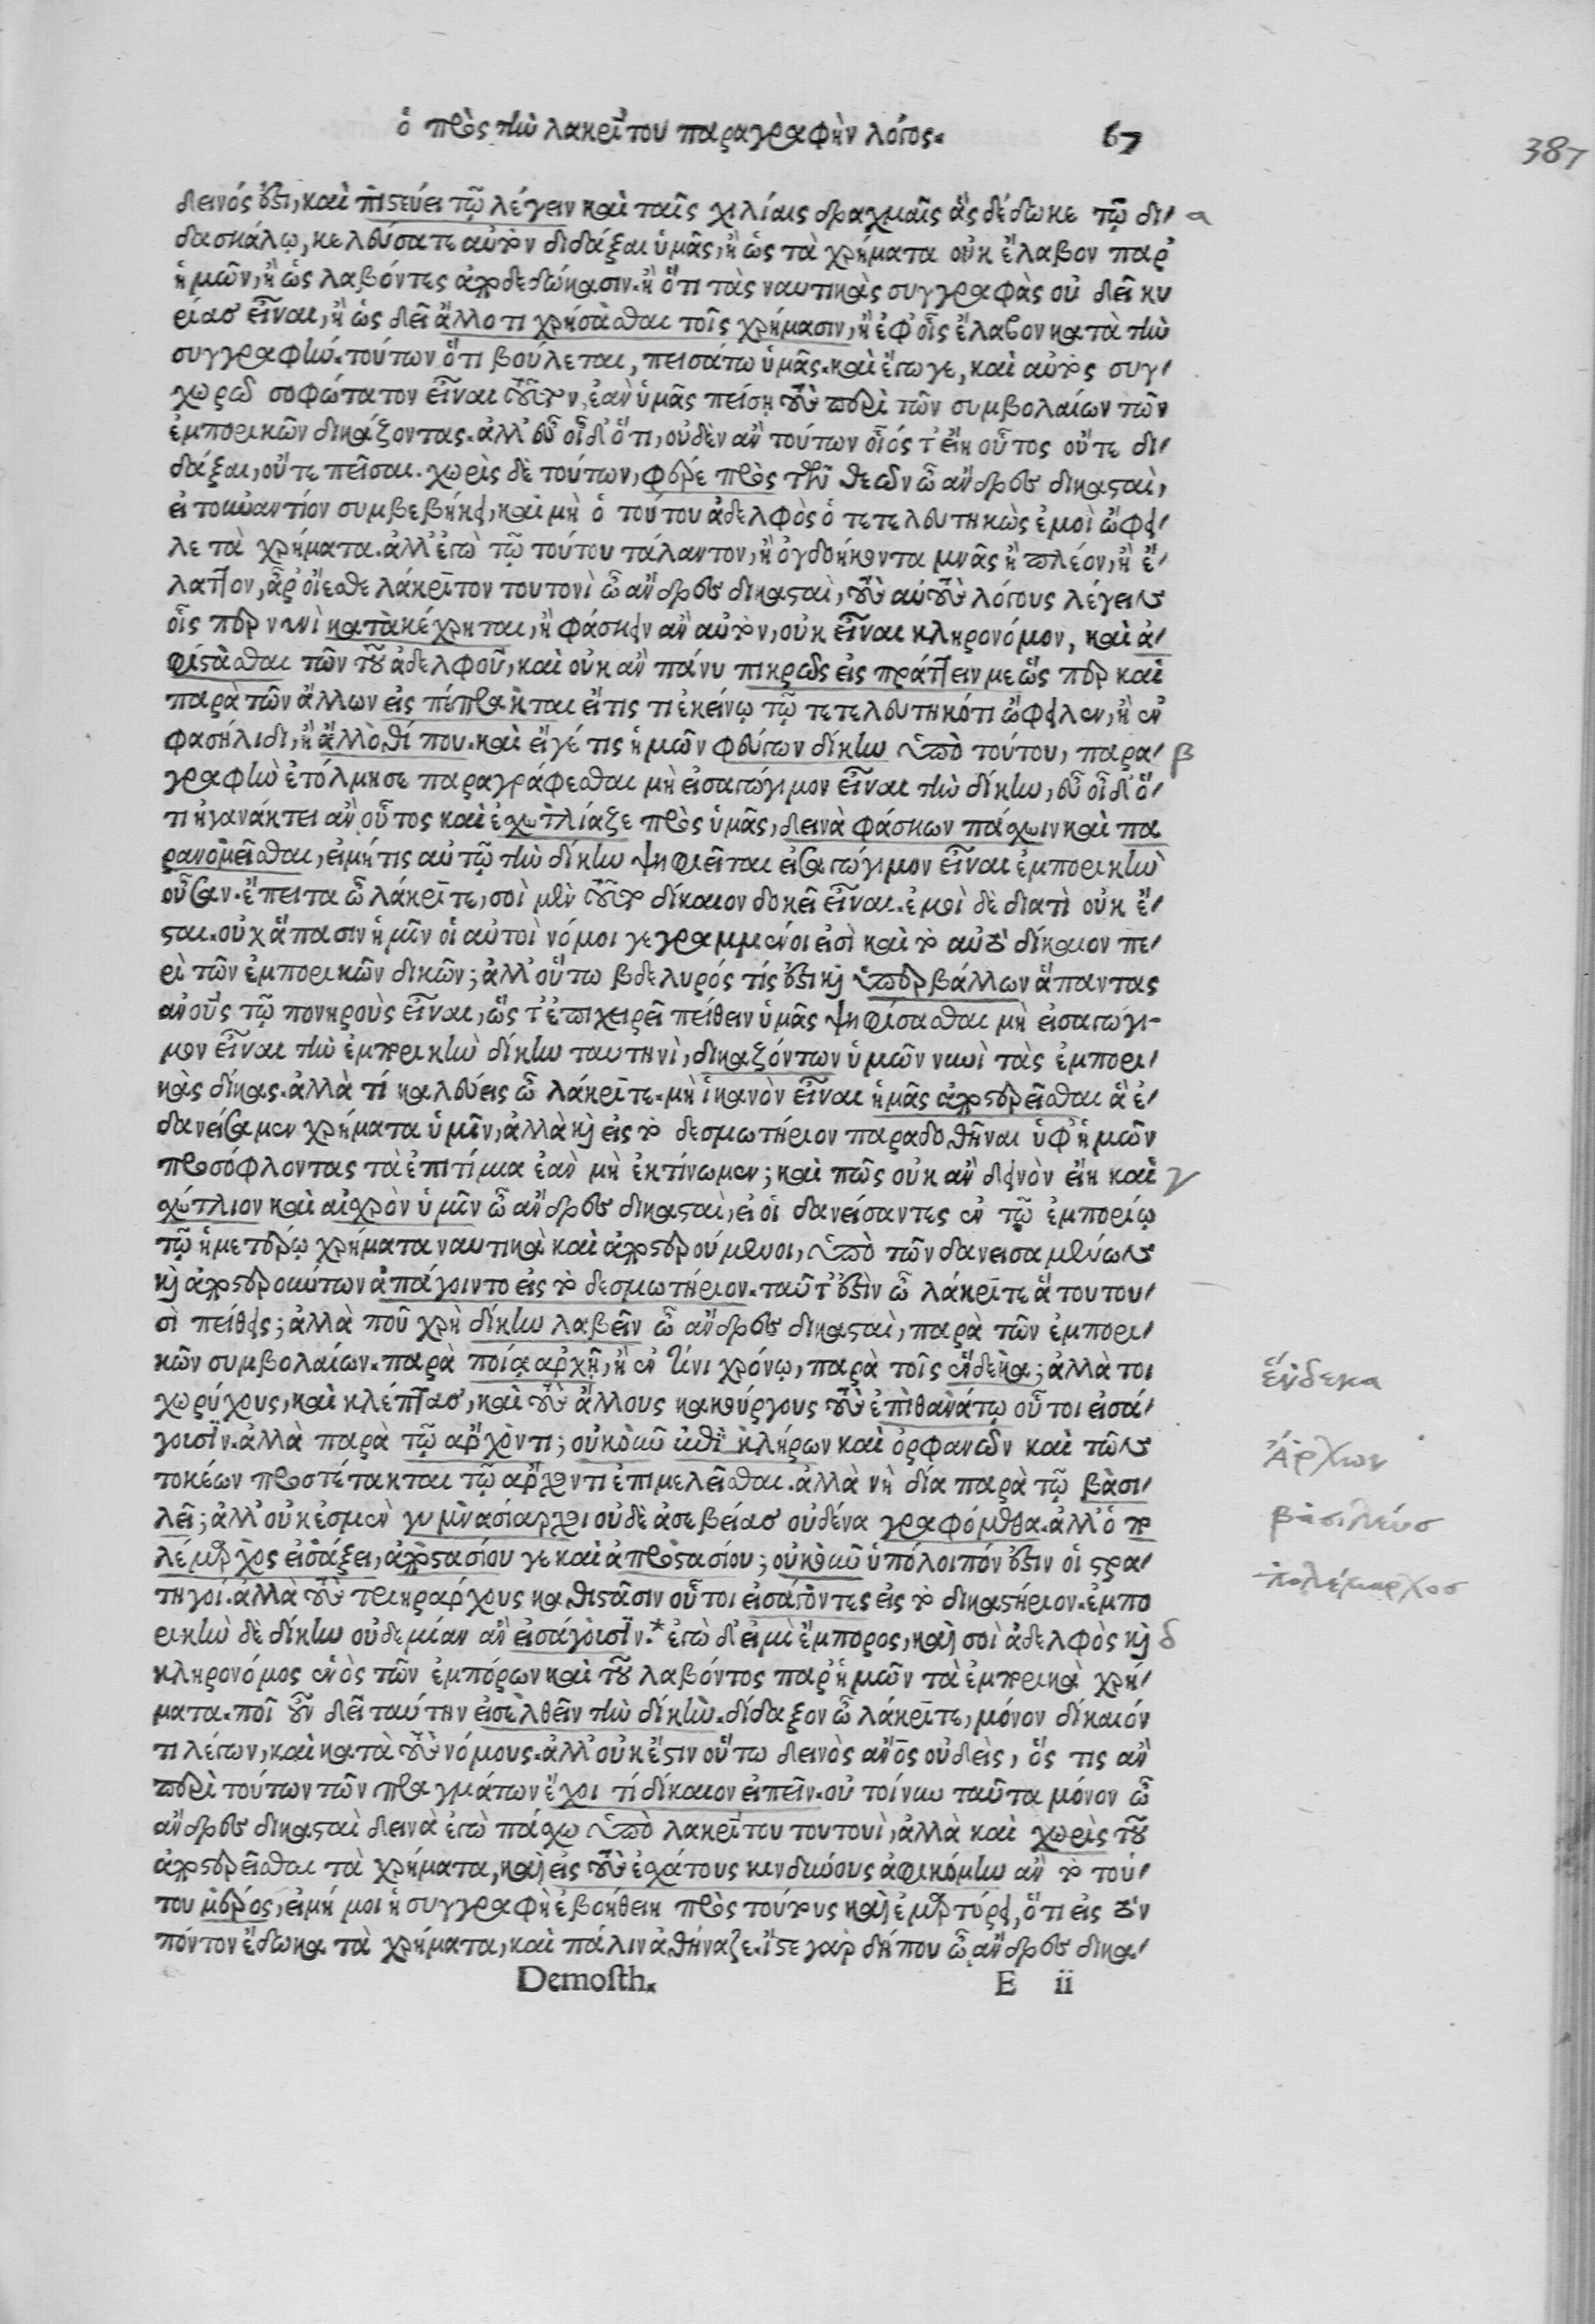 ὁ πρὸς τὴν λακρίτου παραγραφὴν λόγος. 67
387
δεινός ἐστι, καὶ πιστεύει τῷ λέγειν καὶ ταῖς χιλίαις δραχμαῖς ἃς δέδωκε τῷ δι- α
δασκάλῳ, κελεύσατε αὐτὸν διδάξαι ὑμᾶς, ἢ ὡς τὰ χρήματα οὐκ ἔλαβον παρ'
ἡμῶν, ἢ ὡς λαβόντες ἀποδεδώκασιν. ἢ ὅτι τὰς ναυτικὰς συγγραφὰς οὐ δεῖ κυ
ρίας εἶναι, ἢ ὡς δεῖ ἄλλο τι χρήσασθαι τοῖς χρήμασιν, ἢ ἐφ' οἷς ἔλαβον κατὰ τὴν
συγγραφήν. τούτων ὅτι βούλεται, πεισάτω ὑμᾶς. καὶ ἔγωγε, καὶ αὐτὸς συγ-
χωρῶ σοφώτατον εἶναι τοῦτον, ἐὰν ὑμᾶς πείσῃ τοὺς περὶ τῶν συμβολαίων τῶν
ἐμπορικῶν δικάζοντας. ἀλλ' εὖ οἶδ' ὅτι, οὐδὲν ἂν τούτων οἷός τ' εἴη οὗτος οὔτε δι-
δάξαι, οὔτε πεῖσαι. χωρὶς δὲ τούτων, φέρε πρὸς τῶν θεῶν ὦ ἄνδρες δικασταὶ,
εἰ τοὐναντίον συμβεβήκει, καὶ μὴ ὁ τούτου ἀδελφὸς ὁ τετελευτηκὼς ἐμοὶ ὤφει-
λε τὰ χρήματα. ἀλλ' ἐγὼ τῷ τούτου τάλαντον, ἢ ὀγδοήκοντα μνᾶς ἢ πλέον, ἢ ἔ-
λαττον, ἆρ' οἴεσθε λάκριτον τουτονὶ ὦ ἄνδρες δικασταὶ, τοὺς αὐτοὺς λόγους λέγειν
οἷς περ νυνὶ κατακέχρηται, ἢ φάσκειν ἂν αὐτὸν, οὐκ εἶναι κληρονόμον, καὶ ἀ-
φίστασθαι τῶν τοῦ ἀδελφοῦ, καὶ οὐκ ἂν πάνυ πικρῶς εἰς πράττειν με ὥς περ καὶ
παρὰ τῶν ἄλλων εἰς πέπρακται εἴ τις τι ἐκείνῳ τῷ τετελευτηκότι ὤφειλεν, ἢ ἐν
φασήλιδι, ἢ ἄλλοθί που. καὶ εἴ γέ τις ἡμῶν φεύγων δίκην ὑπὸ τούτου, παρα- β
γραφὴν ἐτόλμησε παραγράφεσθαι μὴ εἰσαγώγιμον εἶναι τὴν δίκην, εὖ οἶδ' ὅ-
τι ἠγανάκτει ἂν οὗτος καὶ ἐσχετλίαζε πρὸς ὑμᾶς, δεινὰ φάσκων πάσχειν καὶ πα
ρανομεῖσθαι, εἰ μή τις αὐτῷ τὴν δίκην ψηφιεῖται εἰσαγώγιμον εἶναι ἐμπορικὴν
οὖσαν. ἔπειτα ὦ λάκριτε, σοὶ μὲν τοῦτο δίκαιον δοκεῖ εἶναι. ἐμοὶ δὲ διατὶ οὐκ ἔ-
σται. οὐχ ἅπασιν ἡμῖν οἱ αὐτοὶ νόμοι γεγραμμένοι εἰσὶ καὶ τὸ αὐτὸ δίκαιον πε-
ρὶ τῶν ἐμπορικῶν δικῶν; ἀλλ' οὕτω βδελυρός τίς ἐστι καὶ ὑπερβάλλων ἅπαντας
ἀνοὺς τῷ πονηροὺς εἶναι, ὥς τ' ἐπιχειρεῖ πείθειν ὑμᾶς ψηφίσασθαι μὴ εἰσαγώγι-
μον εἶναι τὴν ἐμπορικὴν δίκην ταυτηνὶ, δικαζόντων ὑμῶν νυνὶ τὰς ἐμπορι-
κὰς δίκας. ἀλλὰ τί κελεύεις ὦ λάκριτε. μὴ ἱκανὸν εἶναι ἡμᾶς ἀποστερεῖσθαι ἃ ἐ-
δανείσαμεν χρήματα ὑμῖν, ἀλλὰ καὶ εἰς τὸ δεσμωτήριον παραδοθῆναι ὑφ' ἡμῶν
προσόφλοντας τὰ ἐπιτίμια ἐὰν μὴ ἐκτίνωμεν; καὶ πῶς οὐκ ἂν δεινὸν εἴη καὶ γ
σχέτλιον καὶ αἰσχρὸν ὑμῖν ὦ ἄνδρες δικασταὶ, εἰ οἱ δανείσαντες ἐν τῷ ἐμπορίῳ
τῷ ἡμετέρῳ χρήματα ναυτικὰ καὶ ἀποστερούμενοι, ὑπὸ τῶν δανεισαμένων
καὶ ἀποστερούντων ἀπάγοιντο εἰς τὸ δεσμωτήριον. ταῦτ' ἐστὶν ὦ λάκριτε ἃ τουτου-
σὶ πείθεις; ἀλλὰ ποῦ χρὴ δίκην λαβεῖν ὦ ἄνδρες δικασταὶ, παρὰ τῶν ἐμπορι-
κῶν συμβολαίων. παρὰ ποίᾳ ἀρχῇ, ἢ ἐν τίνι χρόνῳ, παρὰ τοῖς ἕνδεκα; ἀλλὰ τοι
ἕνδεκα
χωρύχους, καὶ κλέπτας, καὶ τοὺς ἄλλους κακούργους τοὺς ἐπὶ θανάτῳ οὗτοι εἰσά-
γουσιν. ἀλλὰ παρὰ τῷ ἄρχοντι; οὐκοῦν ἐπὶ κλήρων καὶ ὀρφανῶν καὶ τῶν
Ἄρχων
τοκέων προστέτακται τῷ ἄρχοντι ἐπιμελεῖσθαι. ἀλλὰ νὴ δία παρὰ τῷ βασι-
λεῖ; ἀλλ' οὐκ ἐσμὲν γυμνασίαρχοι οὐδὲ ἀσεβείας οὐδένα γραφόμεθα. ἀλλ' ὁ πο
βασιλεύς
λέμαρχος εἰσάξει, ἀποστασίου γε καὶ ἀπροστασίου; οὐκοῦν ὑπόλοιπόν ἐστιν οἱ στρα-
πολέμαρχος
τηγοί. ἀλλὰ τοὺς τριηράρχους καθιστᾶσιν οὗτοι εἰσάγοντες εἰς τὸ δικαστήριον. ἐμπο
ρικὴν δὲ δίκην οὐδεμίαν ἂν εἰσάγουσιν.* ἐγὼ δ' εἰμὶ ἔμπορος, καὶ σοὶ ἀδελφὸς καὶ δ
κληρονόμος ἑνὸς τῶν ἐμπόρων καὶ τοῦ λαβόντος παρ' ἡμῶν τὰ ἐμπορικὰ χρή-
ματα. ποῖ οὖν δεῖ ταύτην εἰσελθεῖν τὴν δίκην. δίδαξον ὦ λάκριτε, μόνον δίκαιόν
τι λέγων, καὶ κατὰ τοὺς νόμους. ἀλλ' οὐκ ἔστιν οὕτω δεινὸς ἀνος οὐδεὶς, ὅς τις ἂν
περὶ τούτων τῶν πραγμάτων ἔχοι τί δίκαιον εἰπεῖν. οὐ τοίνυν ταῦτα μόνον ὦ
ἄνδρες δικασταὶ δεινὰ ἐγὼ πάσχω ὑπὸ λακρίτου τουτουὶ, ἀλλὰ καὶ χωρὶς τοῦ
ἀποστερεῖσθαι τὰ χρήματα, καὶ εἰς τοὺς ἐσχάτους κινδύνους ἀφικόμην ἂν τὸ τού-
του μέρος, εἰ μή μοι ἡ συγγραφὴ ἐβοήθει πρὸς τούτους καὶ ἐμαρτύρει, ὅτι εἰς τὸν
πόντον ἔδωκα τὰ χρήματα, καὶ πάλιν ἀθήναζε. ἴστε γὰρ δήπου ὦ ἄνδρες δικα-
Demosth. E ii